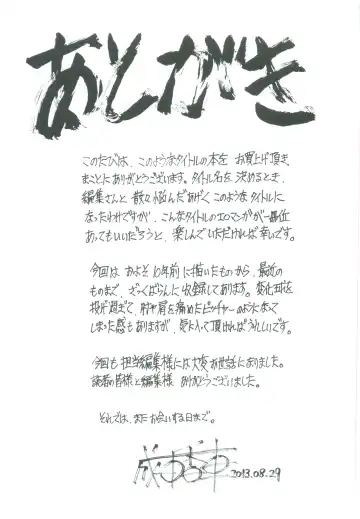 あとがき
このたびは、このようなタイトルの本を お買上げ頂き
まことにありがとうございます。タイトル名を 決めるとき、
編集さんと 散々悩んだあげく このようなタイトルに
なったわけですが、こんなタイトルのエロマンガが一冊位
あってもいいだろうと、楽しんでいただければ幸いです。
今回は およそ 10年前に描いたものから、最近の
ものまで、ざっくばらんに 収録してあります。変化球を
投げ過ぎて、肘や肩を痛めたピッチャーのようになって
しまった感もありますが、気に入って頂ければうれしいです。
今回も 担当編集様には大変お世話になりました。
読者の皆様と編集様 ありがとうございました。
それでは、またお会いする日まで。
2013.08.29